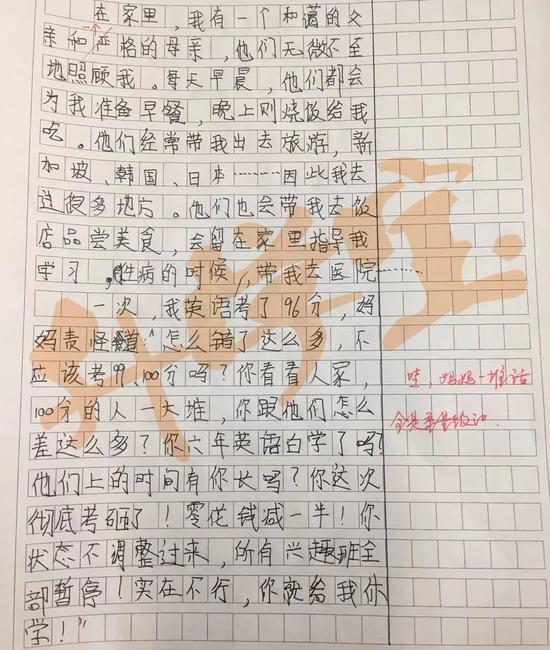 在家里，我有一个和蔼的父
亲和一严格的母亲，他们无微不至
地照顾我。每天早晨，他们都会
为我准备早餐，晚上则烧饭给我
吃。他们经常带我出去旅游，新
加坡、韩国、日本………因此我去
过很多地方。他们也会带我去饭
店品尝美食，会留在家里指导我
学习，生病的时候，带我去医院………
一次，我英语考了96分，妈
妈责怪道："怎么错了这么多，不
应该考99、100分吗？你看看人家，
100分的人一大堆，你跟他们怎么
差这么多？你六年英语白学了吗？
他们上的时间有你长吗？你这次
彻底考砸了！零花钱减一半！你
状态不调整过来，所有兴趣班全
部暂停！实在不行，你就给我休
学！"
哇，妈妈一堆话
全是重量级的
升学宝